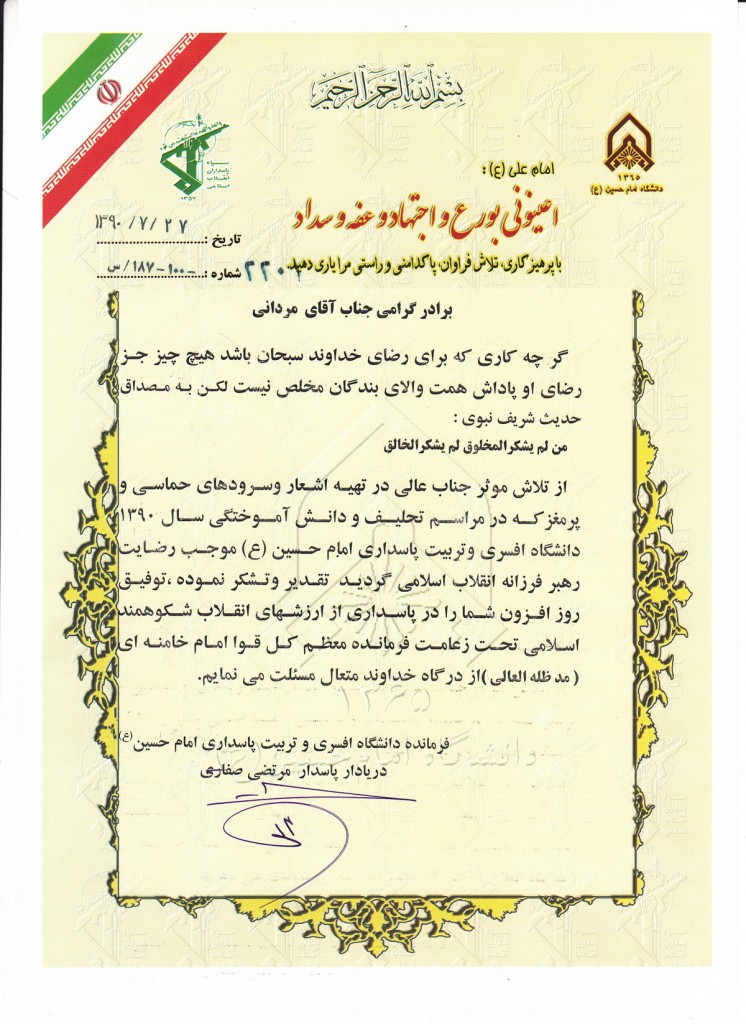 بسم الله الرحمن الرحیم
سپاه
پاسداران
انقلاب
اسلامی
۱۳۵۷
۱۳۶۵
دانشگاه امام حسین (ع)
امام علی (ع) :
اعینونی بورع و اجتهاد و عفه و سداد
با پرهیزگاری، تلاش فراوان، پاکدامنی و راستی مرا یاری دهید.
تاریخ : ۱۳۹۰/۷/۲۷
شماره : ۱۰۰-۱۸۷/س
برادر گرامی جناب آقای مردانی
گر چه کاری که برای رضای خداوند سبحان باشد هیچ چیز جز
رضای او پاداش همت والای بندگان مخلص نیست لکن به مصداق
حدیث شریف نبوی :
من لم یشکرالمخلوق لم یشکرالخالق
از تلاش موثر جناب عالی در تهیه اشعار وسرودهای حماسی و
پرمغزکه در مراسم تحلیف و دانش آموختگی سال ۱۳۹۰
دانشگاه افسری وتربیت پاسداری امام حسین (ع) موجب رضایت
رهبر فرزانه انقلاب اسلامی گردید تقدیر وتشکر نموده ،توفیق
روز افزون شما را در پاسداری از ارزشهای انقلاب شکوهمند
اسلامی تحت زعامت فرمانده معظم کل قوا امام خامنه ای
( مد ظله العالی )از درگاه خداوند متعال مسئلت می نمایم.
۱۳۶۵
فرمانده دانشگاه افسری و تربیت پاسداری امام حسین(ع)
دریادار پاسدار مرتضی صفاری
دانشگاه امام حسین